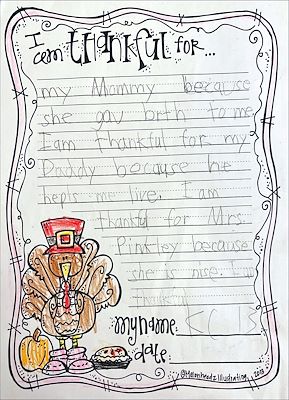 I am thankful for...
my Mommy because
she gav brth to me
I am thankful for my
Daddy because he
heprs me live. I am
thankful for Mrs.
Pinkley because
she is nise. I am
thankful
my name
date